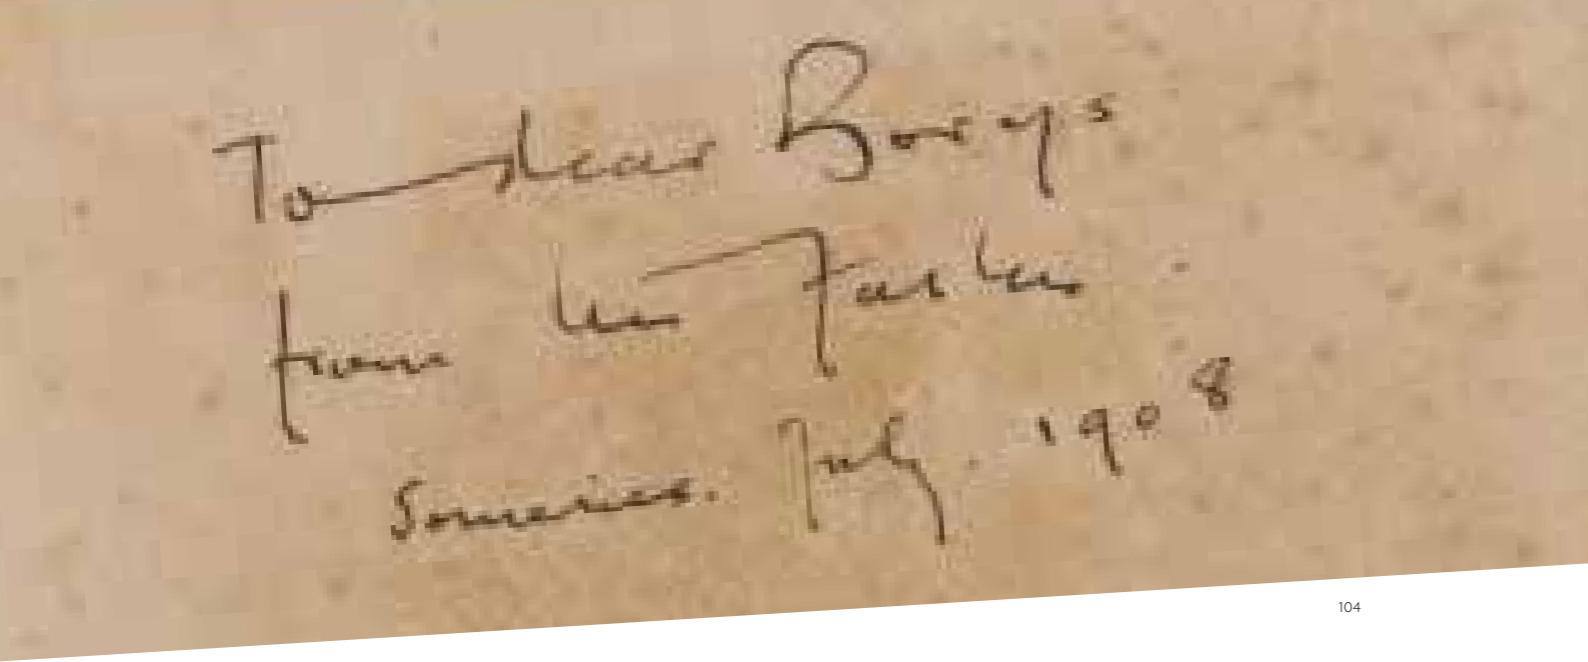 To dear Borys
from his Father.
Someries. July. 1908
104